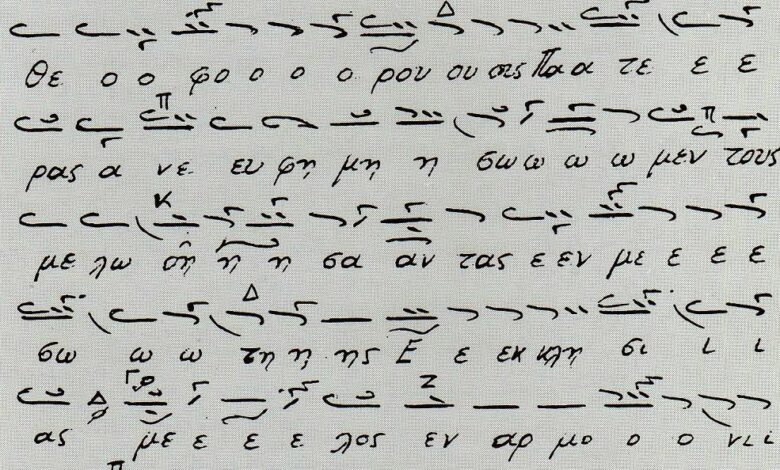 Θε ο ο φο ο ο ο ρου ου ους Πα α τε ε ε
ρας α νε ευ φη μη η σω ω ω ω μεν τους
με λω δη η η σα αν τας ε εν με ε ε ε
σω ω ω τη η ης Ε ε εκ κλη σι ι ι
ας με ε ε ε λος εν αρ μο ο ο νι ι